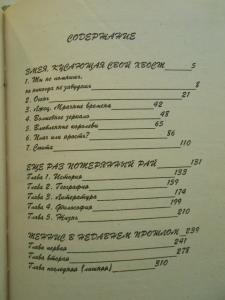 СОДЕРЖАНИЕ
ЗМЕЯ, КУСАЮЩАЯ СВОЙ ХВОСТ 5
1. Ты не помнишь,
но никогда не забудешь 8
2. Очаг 21
3. Мрачные времена 42
4. Волшебное зеркало 48
5. Влюбленные королевы 65
6. Плач или ярость? 86
7. Смута 110
ЕЩЕ РАЗ ПОТЕРЯННЫЙ РАЙ 131
Глава 1. История 133
Глава 2. География 159
Глава 3. Литература 174
Глава 4. Философия 199
Глава 5. Жизнь 210
ТЕННИС В НЕДАВНЕМ ПРОШЛОМ 239
Глава первая 241
Глава вторая 278
Глава последняя 310